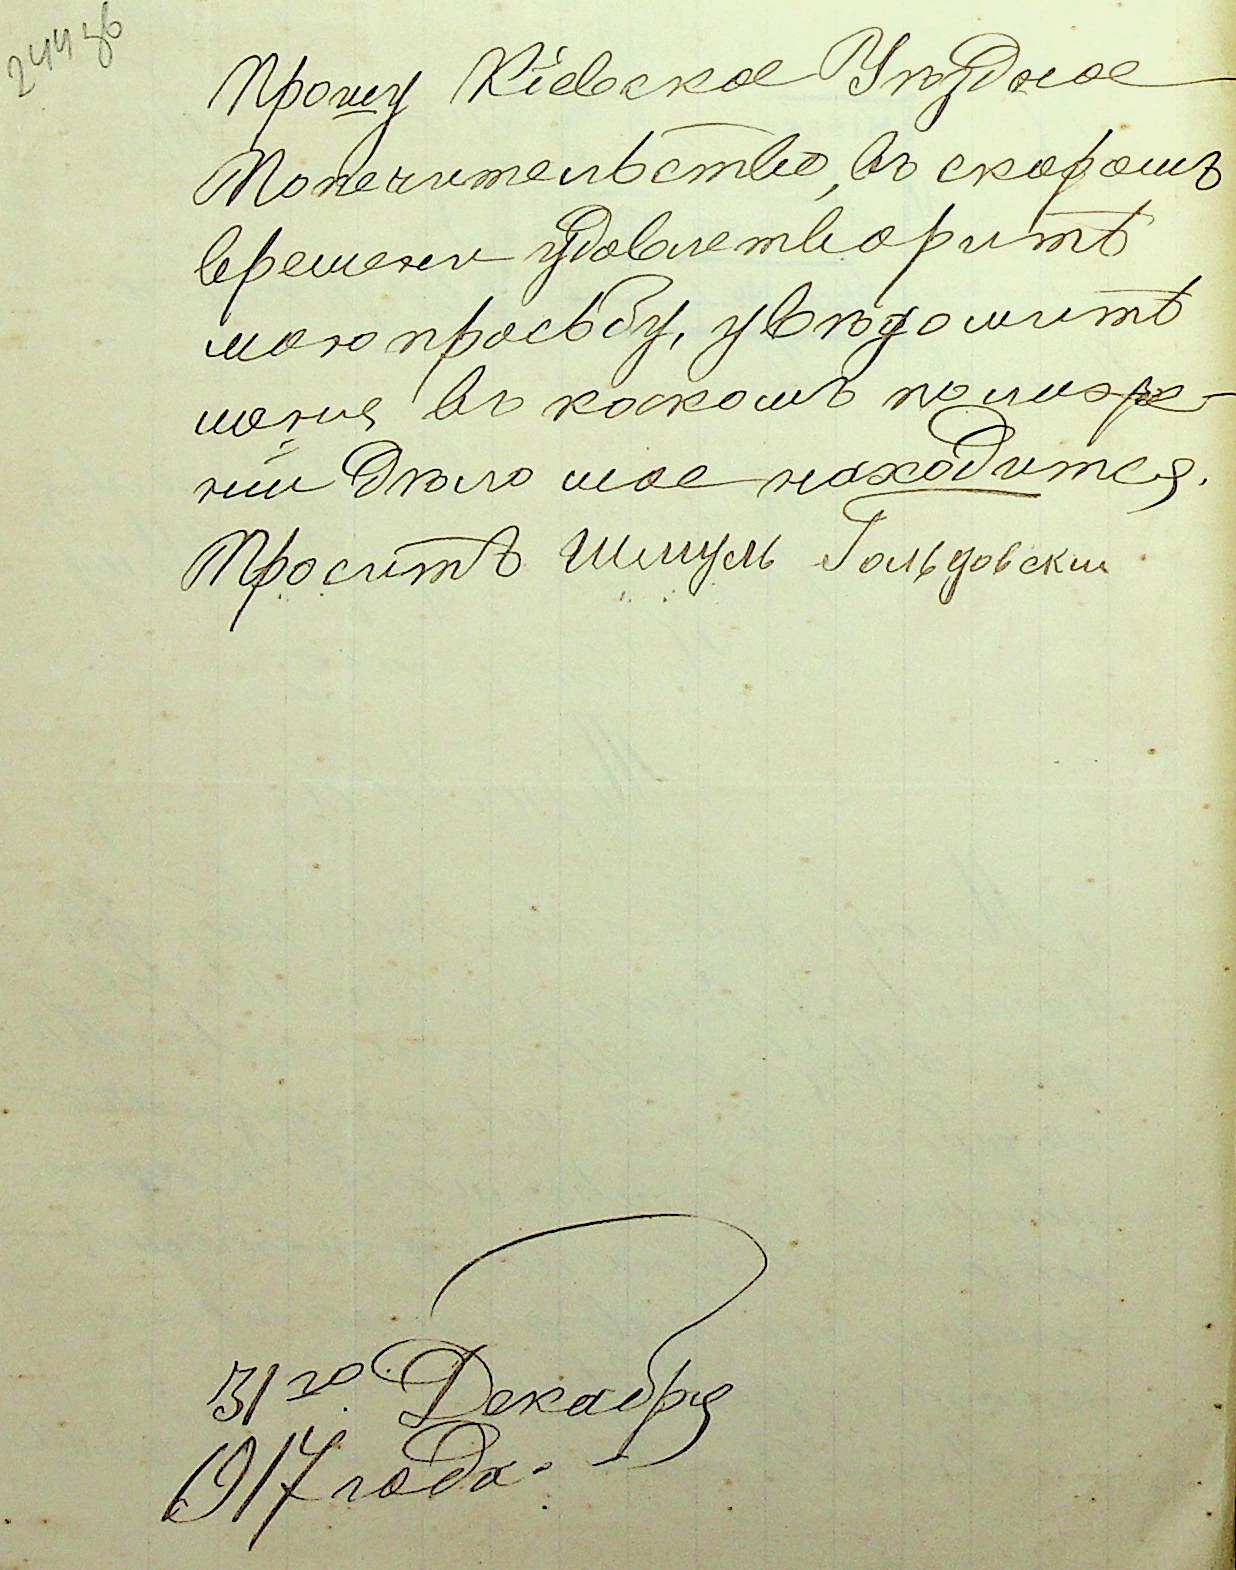 244 зв
Прошу Кіевское Уѣздное
Попечительство, въ скоромъ
времени удовлетворитъ
мою просьбу, увѣдомитъ
меня въ какомъ положе-
ніи дѣло мое находится.
Проситъ Шмуль Гольдовски
31го Декабря
1917 года.